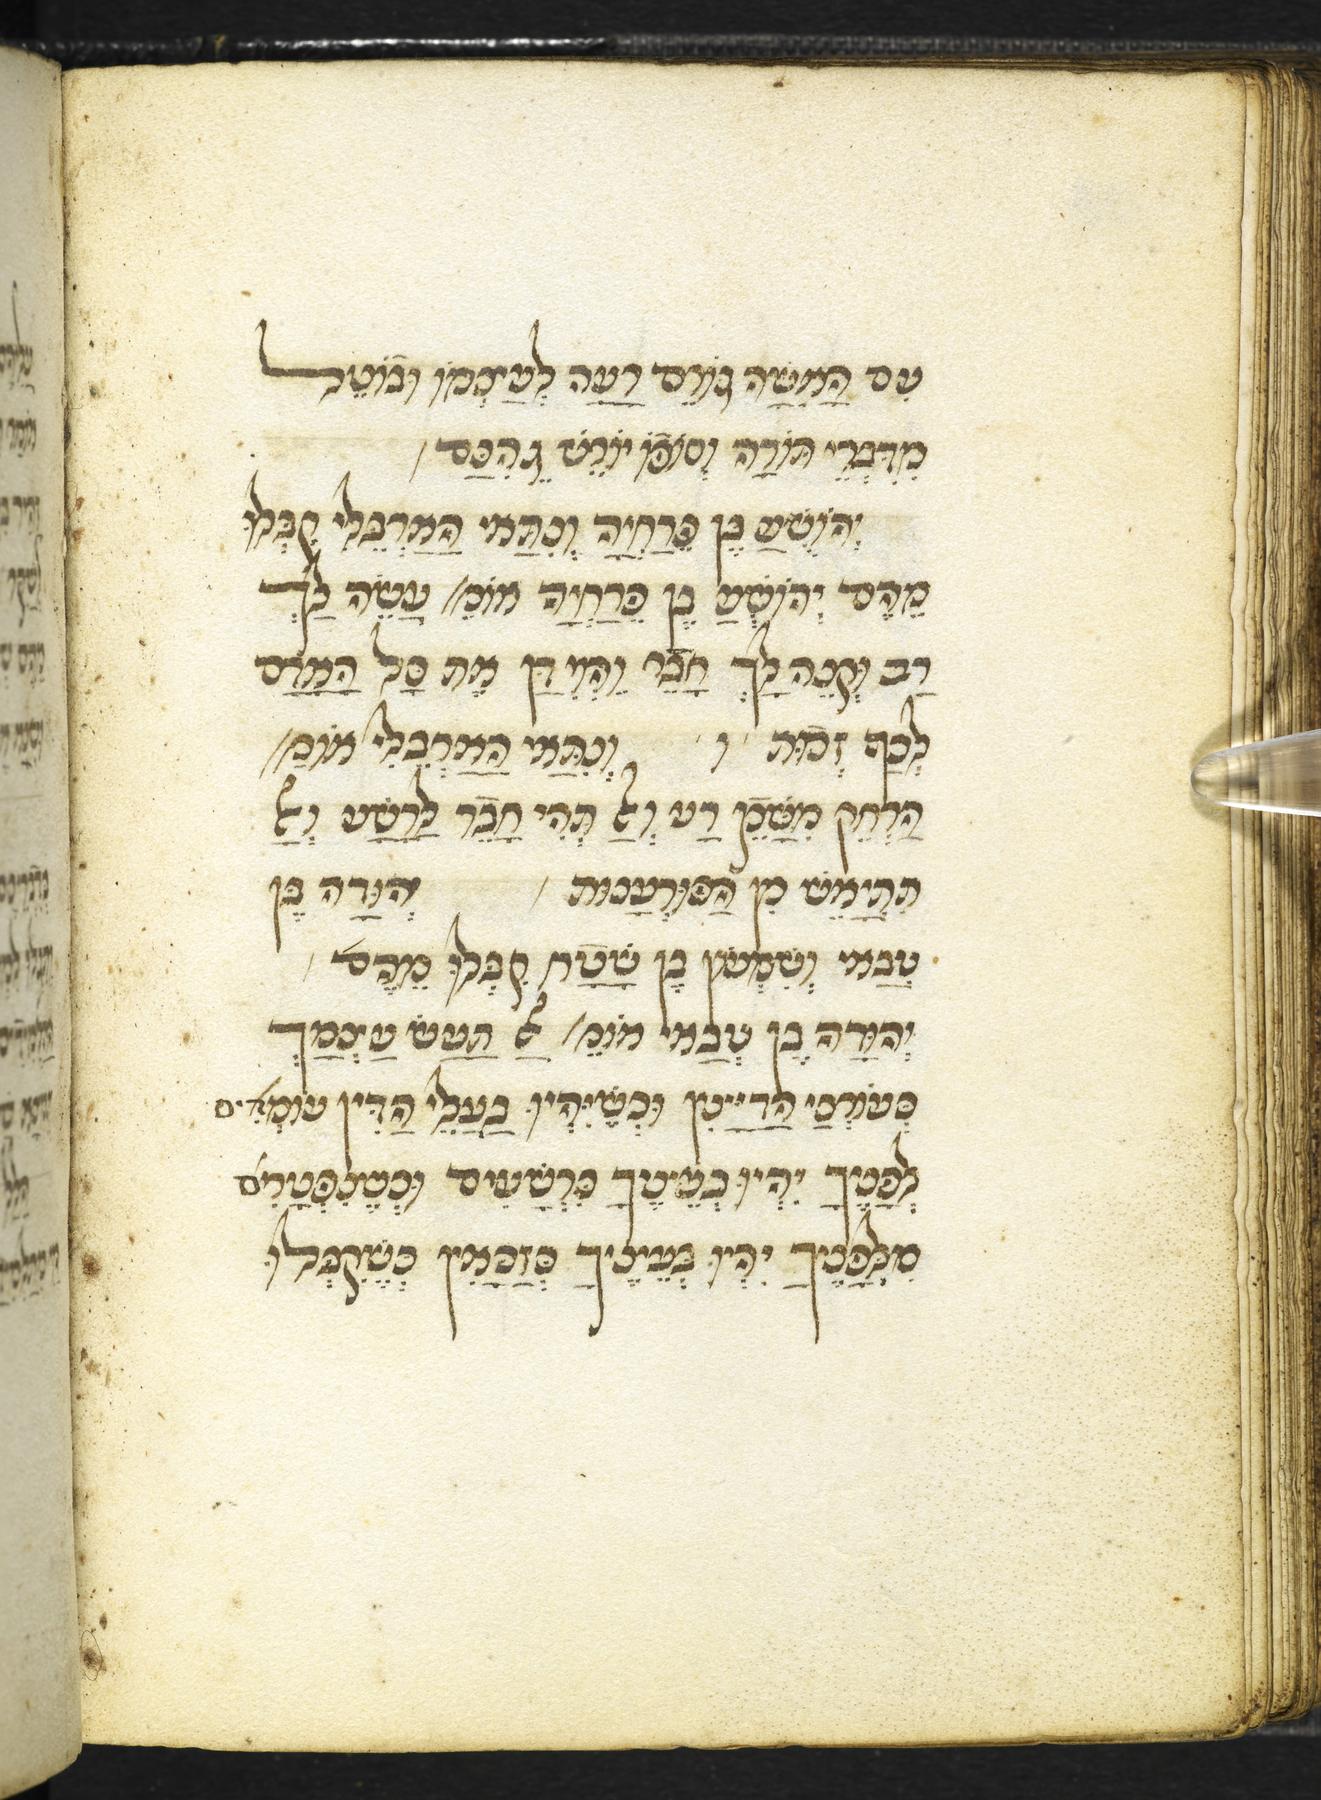 עִם הָאִשָּׁה גּוֹרֵם רָעָה לְעַצְמוֹ וּבוֹטֵל
מִדִּבְרֵי תוֹרָה וְסוֹפוֹ יוֹרֵשׁ גֵּהִנָּם /
יְהוֹשֻׁעַ בֶּן פְּרַחְיָה וְנִתַּאי הַאַרְבֵּלִי קִבְּלוּ
מֵהֶם יְהוֹשֻׁעַ בֶּן פְּרַחְיָה אוֹמֵ/ עֲשֵׂה לְךָ
רַב וּקְנֵה לְךָ חָבֵר וֶהֱוֵי דָן אֶת כָּל הָאָדָם
לְכַף זְכוּת / וְנִתַּאי הַאַרְבֵּלִי אוֹמֵ/
הַרְחֵק מִשָּׁכֵן רָע וְאַל תְּהִי חָבֵר לָרָשָׁע וְאַל
תִּתְיָאֵשׁ מִן הַפּוּרְעָנוּת / יְהוּדָה בֶּן
טַבַּאי וְשִׁמְעוֹן בֶּן שָׁטַח קִבְּלוּ מֵהֶם /
יְהוּדָה בֶּן טַבַּאי אוֹמֵ/ אַל תַּעַשׂ עַצְמְךָ
כְּעוֹרְכֵי הַדַּיָּינִין וּכְשֶׁיִּהְיוּ בַּעֲלֵי הַדִּין עוֹמְדִים
לְפָנֶיךָ יִהְיוּ בְּעֵינֶיךָ כִּרְשָׁעִים וּכְשֶׁנִּפְטָרִים
מִלְּפָנֶיךָ יִהְיוּ בְּעֵינֶיךָ כְּזַכָּאִין כְּשֶׁקִּבְּלוּ